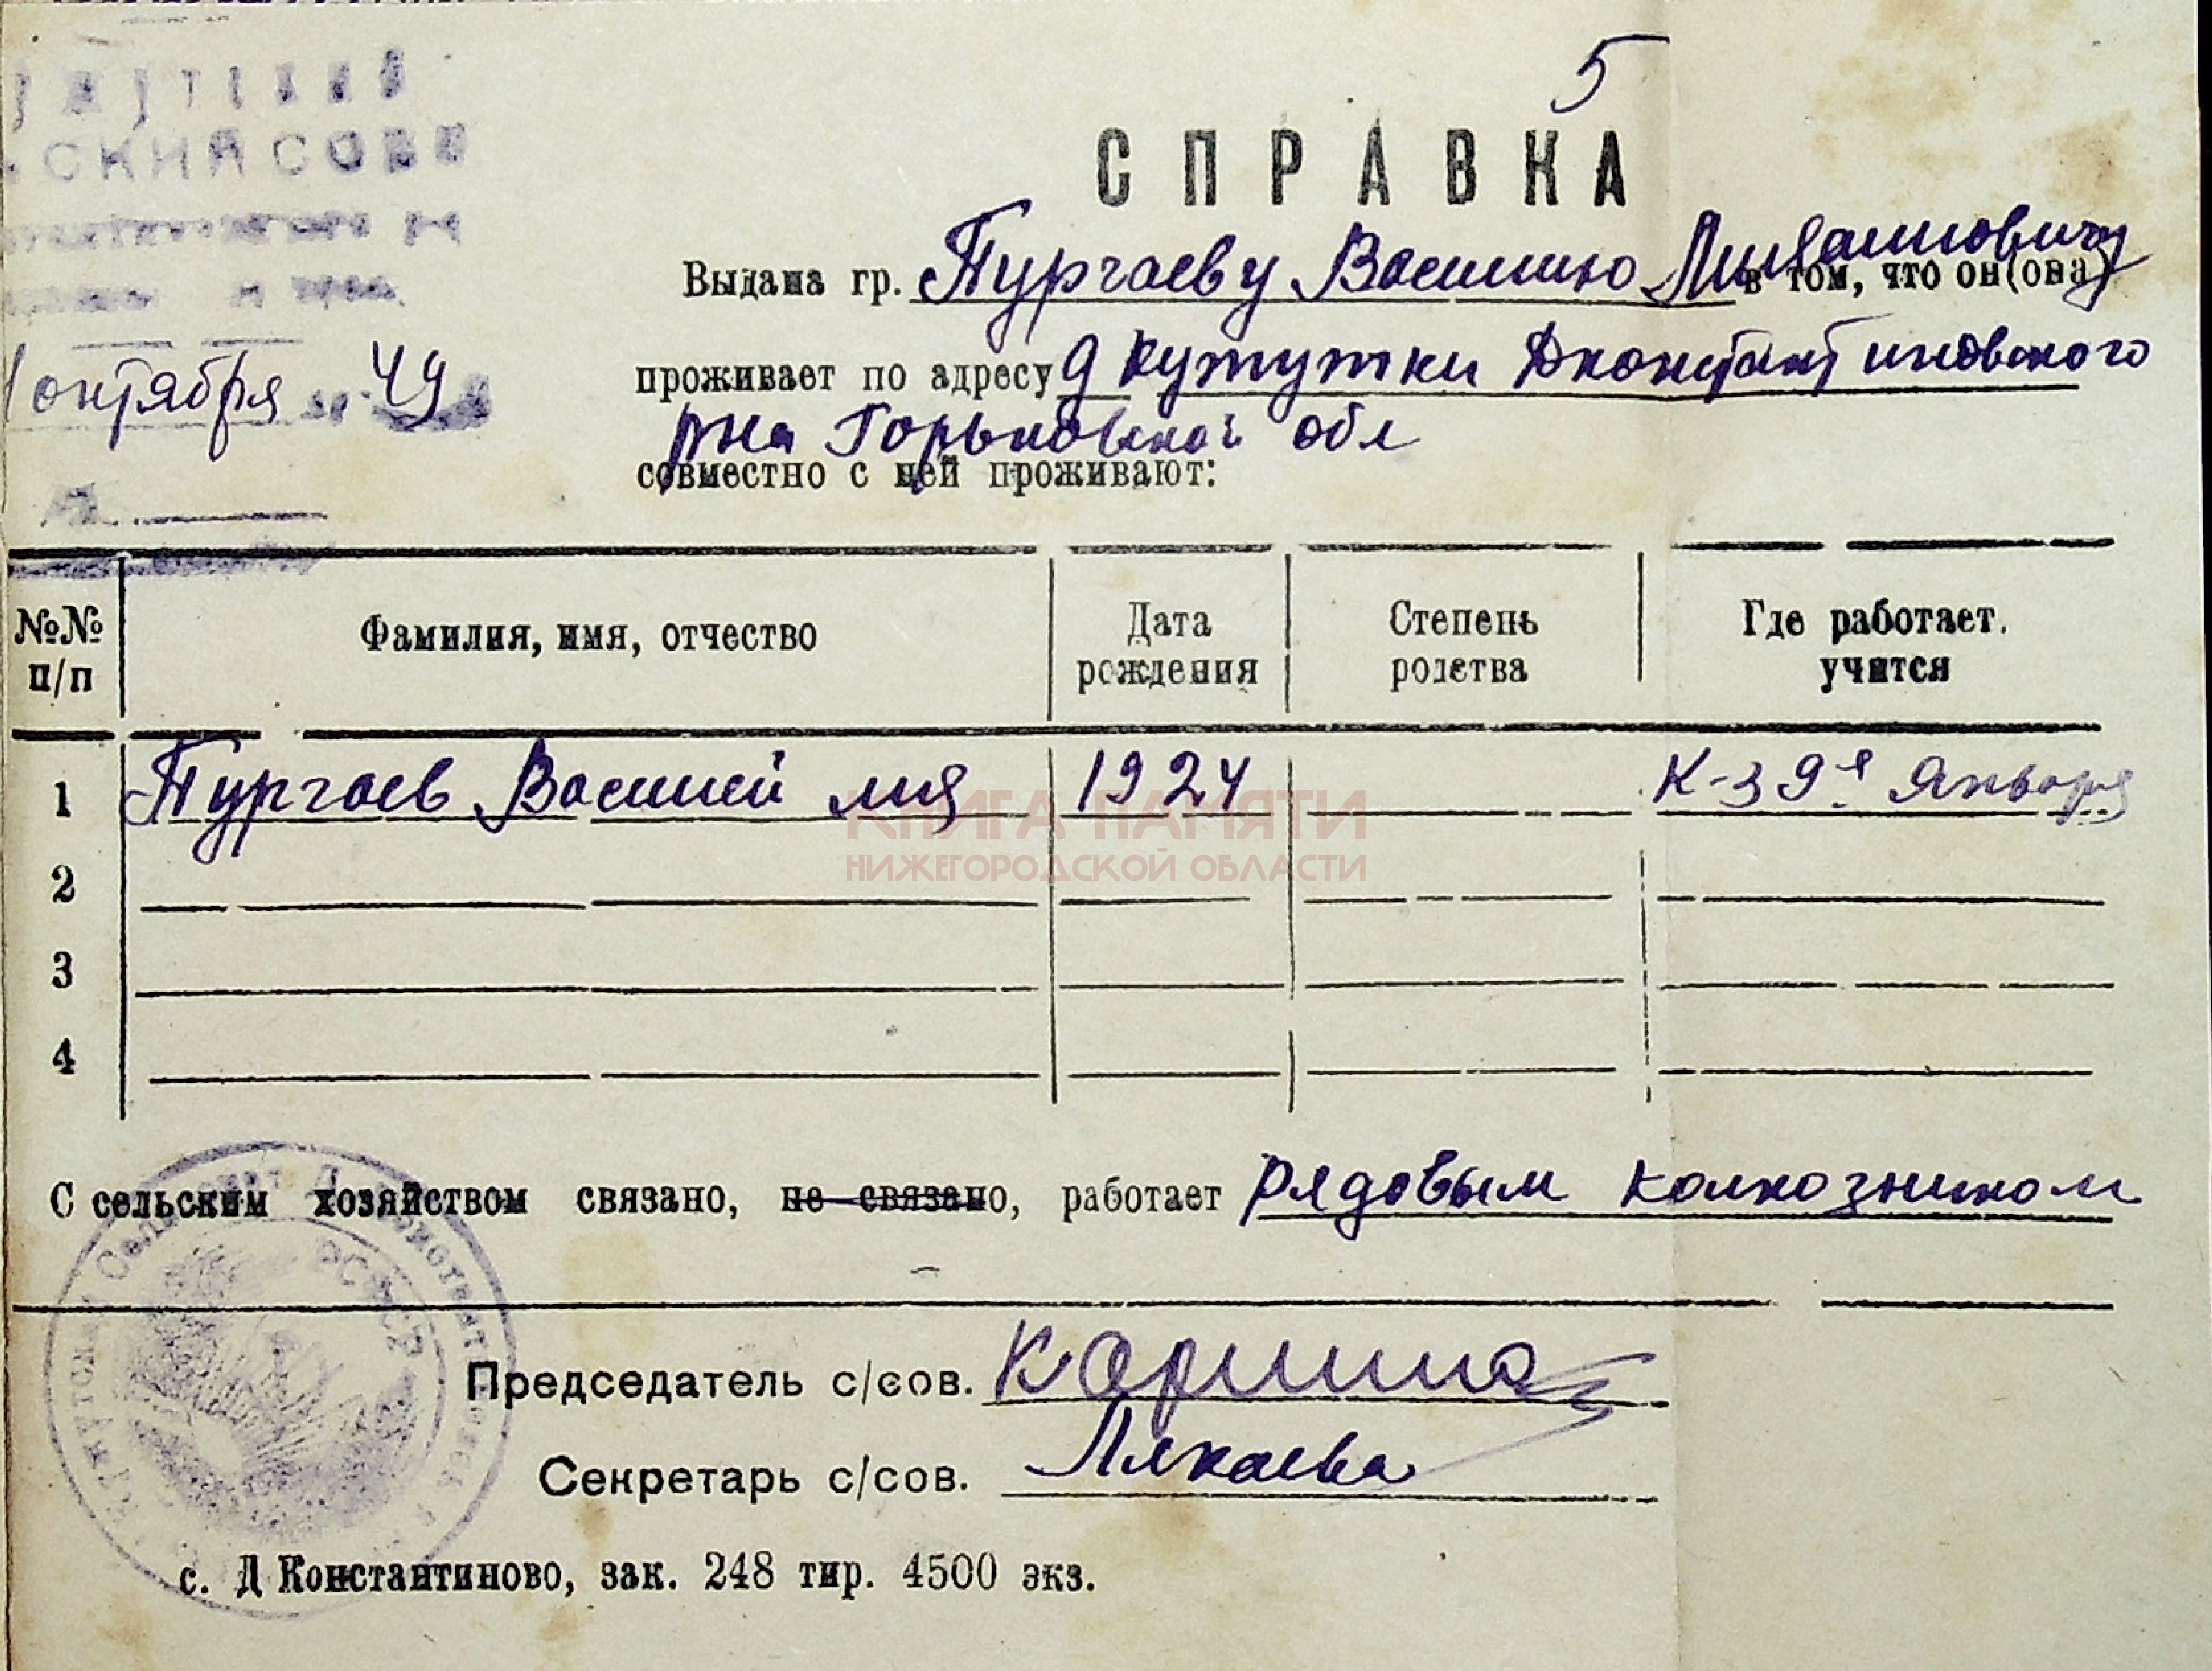 5
СПРАВКА
СКИЙ СОВЕ
октября 49
Выдана гр. Тургаеву Василию в том, что он(она)
проживает по адресу д Кужутки Дконстантиновского
рна Горьковской обл
совместно с ней проживают:
№№ п/п Фамилия, имя, отчество Дата рождения Степень родства Где работает. учится
1 Тургаев Василий 1924 К-з 9е Января
2
3
4
КНИГА ПАМЯТИ
НИЖЕГОРОДСКОЙ ОБЛАСТИ
С сельским хозяйством связано, не связано, работает рядовым колхозником
Председатель с/сов.
Секретарь с/сов. Лякаева
с. Д Константиново, зак. 248 тир. 4500 экз.